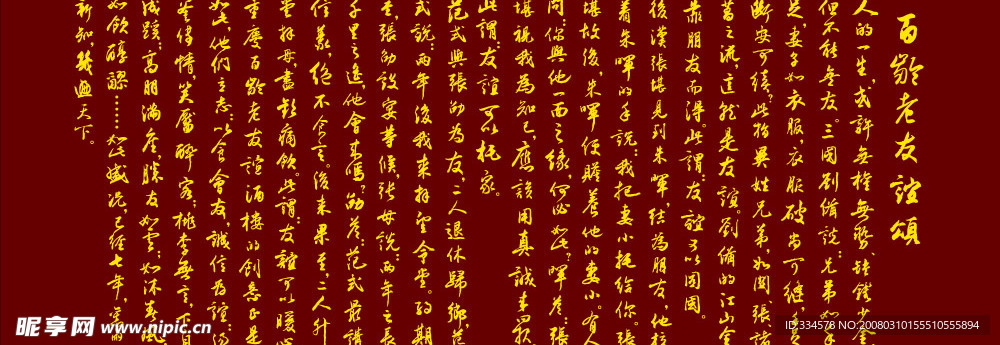 百龄老友誼頌
人的一生，或許無權無勢，缺錢少金，
但不能無友。三國劉備説：兄弟如手
足，妻子如衣服，衣服破尚可縫，手足
断安可續？此指異姓兄弟，如関、張諸
葛之流，這就是友誼。劉備的江山全
靠朋友而得。此謂：友誼可以図國。
後漢張堪見到朱暉，結為朋友，他拉
着朱暉的手説：我把妻小托给你。張
堪故後，朱暉便賙養他的妻小。有人
問：你與他一面之緣，何必如此？暉答：張
堪視我為知己，應該用真誠来報
此謂：友誼可以托家。
范式與張劭为友，二人退休歸鄉，范
式説：两年後我来拜望令堂，約期
至，張劭設宴等候，张母説：两年之長
千里之遠，他會来嗎？劭答：范式最講
信義，絕不食言。後来果至，二人升
堂拜母，盡歡痛飲。此謂：友誼可以暖心
重慶百龄老友誼酒樓的創意正是
如此，他們立志：以食會友，誠信为誼；湯
芝傳情，笑靨醉客；桃李無言，下自
成蹊；高朋滿座，勝友如雲；如沐春風
如飲醇醪……如此盛况，已经七年，
新知，桃邀天下。
昵享网 www.nipic.cn
ID:334578 NO:20080310155510555894